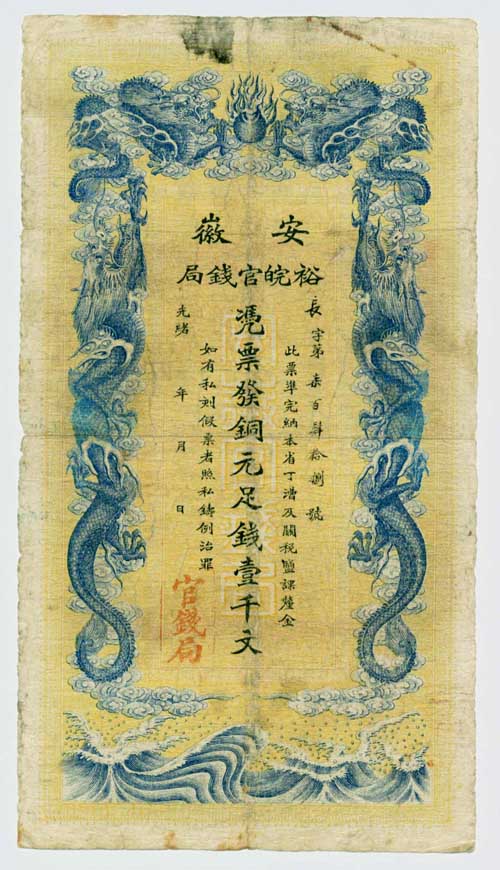 安徽
裕皖官錢局
長字第柒百肆拾捌號
此票準完納本省丁漕及關稅鹽課釐金
凴票發銅元足錢壹千文
如有私刻假票者照私鑄例治罪
光緒 年 月 日
官錢局